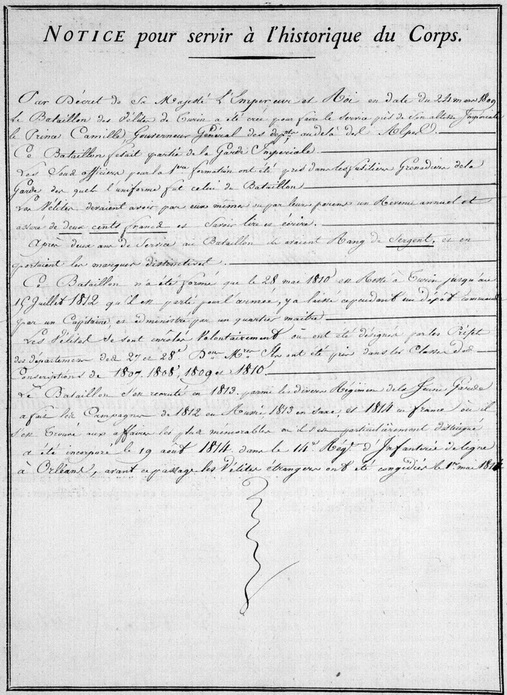 NOTICE pour servir à l'historique du Corps.
Par Décret de Sa Majesté L'Empereur et Roi en date du 24 mars 1809
Le Bataillon des Vélites de Turin a été créé pour faire le Service près de Son altesse Impériale
le Prince Camille, Gouverneur Général des dépts au delà des Alpes
Ce Bataillon fesait partie de la Garde Impériale
Les Seuls officiers pour la 1ere formation ont été pris dans les fusiliers Grenadiers de la
Garde des quels l'uniforme fut celui du Bataillon
Les Vélites devaient avoir par eux mêmes ou par leurs parens un Revenu annuel et
assuré de deux cents francs et Savoir lire et écrire.
Après deux ans de Service au Bataillon ils avaient Rang de Sergent, et en
portaient les marques distinctives
Ce Bataillon n'a été formé que le 28 mai 1810 est Resté à Turin jusqu'au
15 Juillet 1812 qu'il est parti pour l'armée, y a laissé cependant un dépôt commandé
par un Capitaine et administré par un quartier maitre
Les Vélites se sont enrôlés Volontairement ou ont été désignés par les Préfets
des départemens des 27 et 28 Dons Mres Ils ont été pris dans les Classes des
Conscriptions de 1807, 1808, 1809 et 1810
Le Bataillon S'en réunit en 1813 parmi les divers Régimens de la Jeune Garde
a fait les Campagnes de 1812 en Russie 1813 en Saxe et 1814 en france où il
S'est trouvé aux affaires les plus mémorables où il s'est particulièrement distingué
a été incorporé le 19 août 1814, dans le 14e Régt d'Infanterie de ligne
à Orléans, avant ce passage les Vélites étrangers ont été congédiés le 1er mai 1814